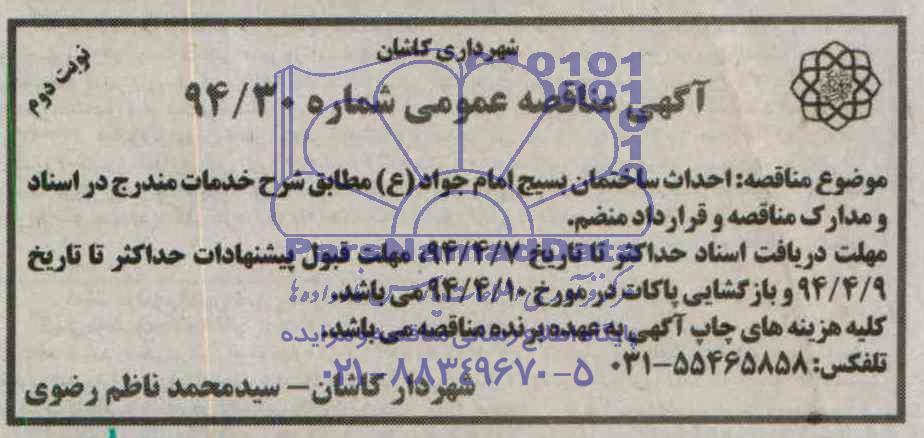 شهرداری کاشان
نوبت دوم
آگهی مناقصه عمومی شماره ۹۴/۳۰
موضوع مناقصه: احداث ساختمان بسیج امام جواد (ع) مطابق شرح خدمات مندرج در اسناد
و مدارک مناقصه و قرارداد منضم.
مهلت دریافت اسناد حداکثر تا تاریخ ۹۴/۴/۷، مهلت قبول پیشنهادات حداکثر تا تاریخ
۹۴/۴/۹ و بازگشایی پاکات در مورخ ۹۴/۴/۱۰ می باشد.
کلیه هزینه های چاپ آگهی به عهده برنده مناقصه می باشد.
تلفکس: ۵۵۴۶۵۸۵۸-۰۳۱
شهردار کاشان – سیدمحمد ناظم رضوی
ParsNamadData
پایگاه اطلاع رسانی مناقصه و مزایده
۰۲۱-۸۸۳۴۹۶۷۰-۵